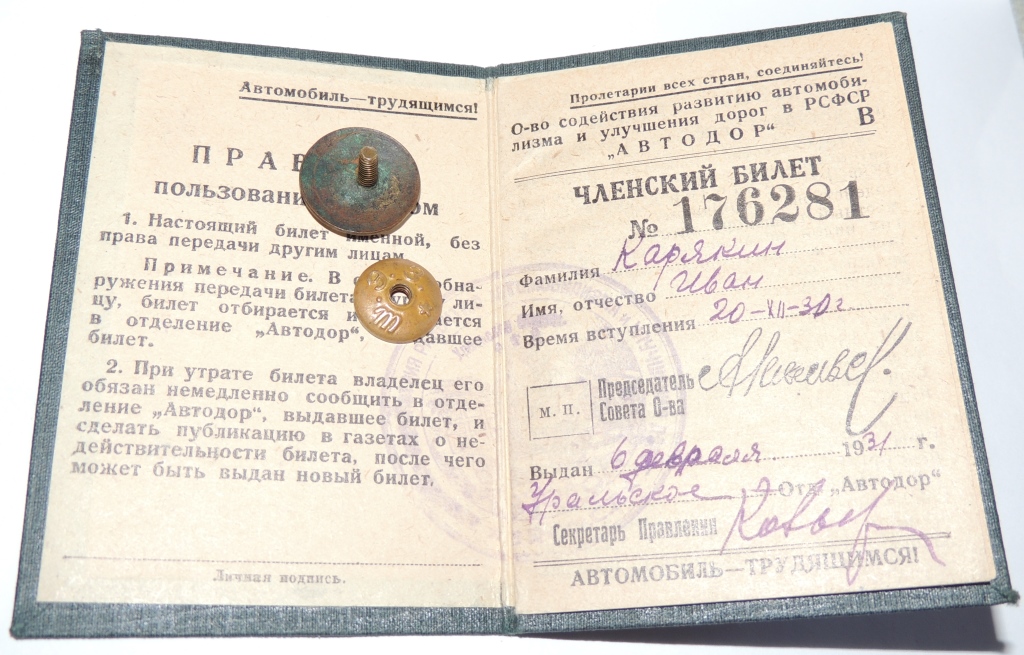 Автомобиль—трудящимся!
ПРАВ
пользовани ом
1. Настоящий билет именной, без
права передачи другим лицам.
Примечание. В обна-
ружения передачи билета ли-
цу, билет отбирается и ается
в отделение „Автодор“, давшее
билет.
2. При утрате билета владелец его
обязан немедленно сообщить в отде-
ление „Автодор“, выдавшее билет, и
сделать публикацию в газетах о не-
действительности билета, после чего
может быть выдан новый билет.
Личная подпись.
Пролетарии всех стран, соединяйтесь!
О-во содействия развитию автомоби-
лизма и улучшения дорог в РСФСР
„АВТОДОР“ В
ЧЛЕНСКИЙ БИЛЕТ
№ 176281
Фамилия Карякин
Имя, отчество Иван
Время вступления 20-XII-30 г
М. П. Председатель
Совета О-ва
Выдан 6 февраля 1931 г.
Уральское Отд. „Автодор“
Секретарь Правления
АВТОМОБИЛЬ—ТРУДЯЩИМСЯ!